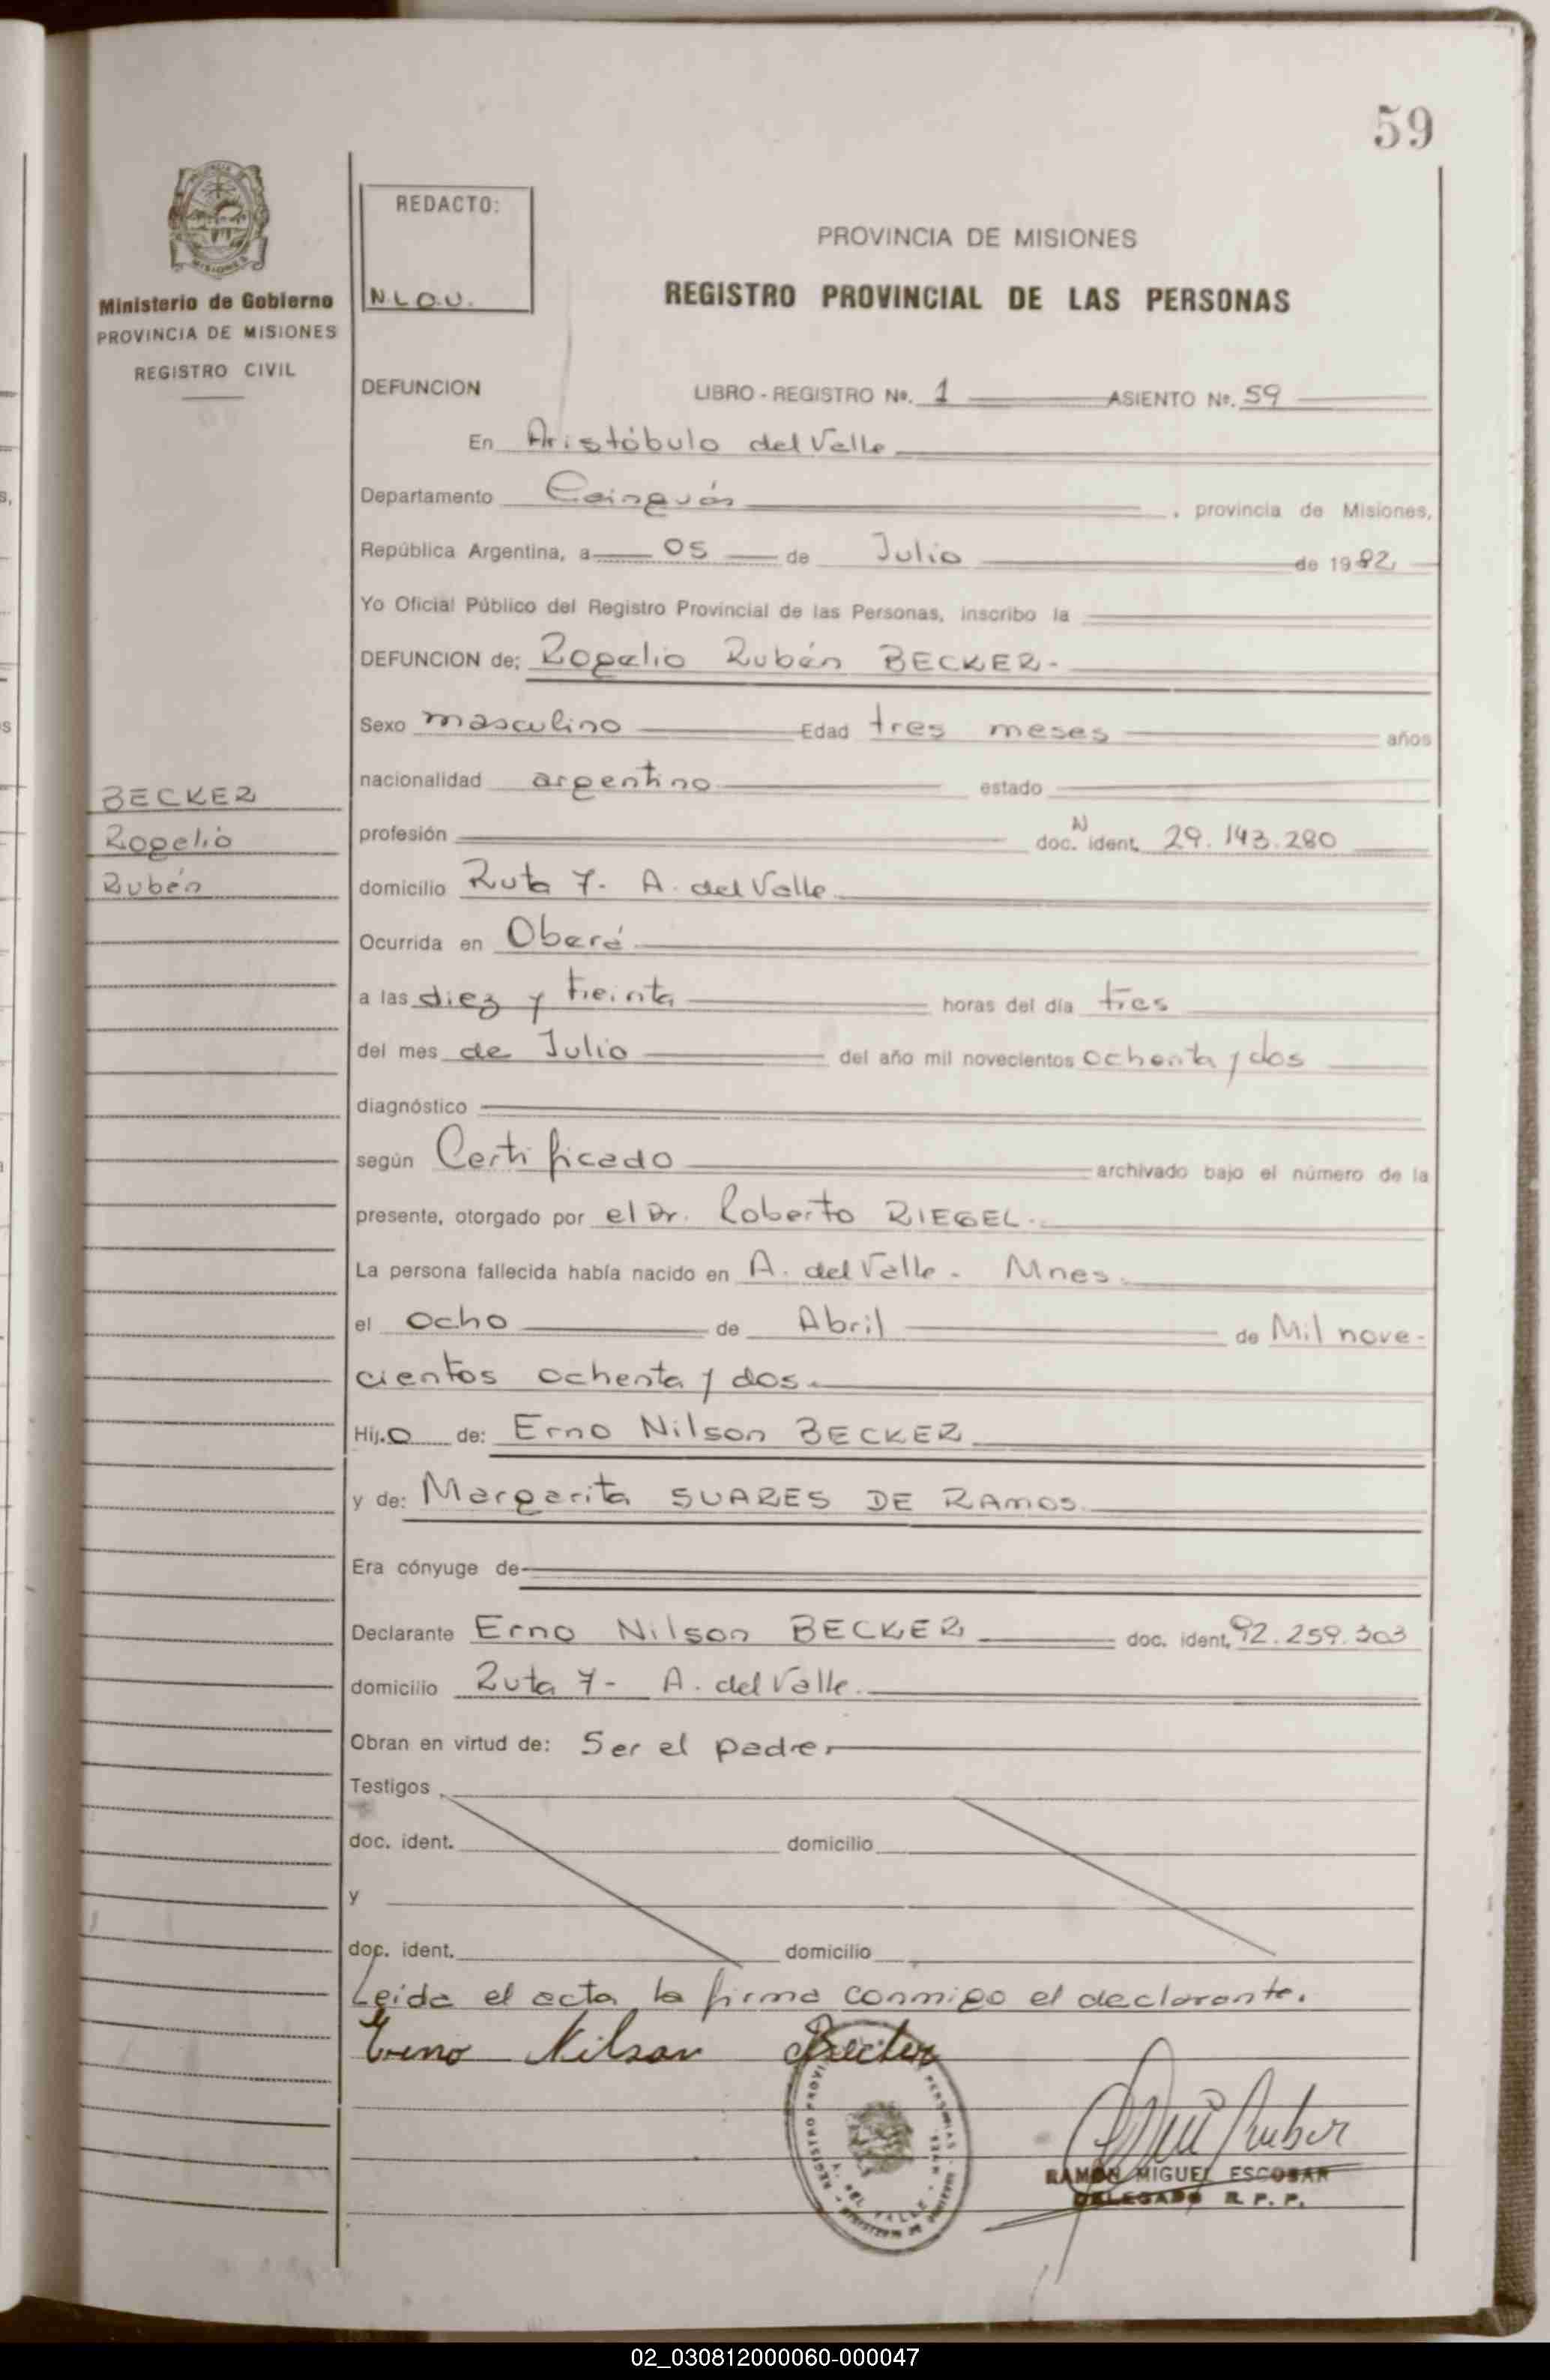 59
REDACTO:
N.L.O.U.
PROVINCIA DE MISIONES
REGISTRO PROVINCIAL DE LAS PERSONAS
Ministerio de Gobierno
PROVINCIA DE MISIONES
REGISTRO CIVIL
DEFUNCION LIBRO - REGISTRO Nº. 1 ASIENTO Nº. 59
En Aristóbulo del Valle
Departamento Cainguás , provincia de Misiones,
República Argentina, a 05 de Julio de 1982
Yo Oficial Público del Registro Provincial de las Personas, inscribo la
DEFUNCION de: Rogelio Rubén BECKER-
Sexo masculino Edad tres meses años
nacionalidad argentino estado
BECKER
Rogelio
Rubén
profesión doc. N ident. 29.143.280
domicilio Ruta 7- A. del Valle
Ocurrida en Oberá
a las diez y treinta horas del día tres
del mes de Julio del año mil novecientos ochenta y dos
diagnóstico
según Certificado archivado bajo el número de la
presente, otorgado por el Dr. Roberto RIEGEL.
La persona fallecida había nacido en A. del Valle - Mnes.
el ocho de Abril de Mil nove-
cientos ochenta y dos.
Hij.o de: Erno Nilson BECKER
y de: Margarita SUARES DE RAMOS
Era cónyuge de
Declarante Erno Nilson BECKER doc. ident. 92.259.303
domicilio Ruta 7- A. del Valle.
Obran en virtud de: Ser el padre,
Testigos
doc. ident. domicilio
y
doc. ident. domicilio
Leida el acta la firma conmigo el declarante.
Erno Nilson Becker
REGISTRO PERSONAS
A. DEL VALLE - MNES.
RAMON MIGUEL ESCOBAR
DELEGADO R. P. P.
02_030812000060-000047